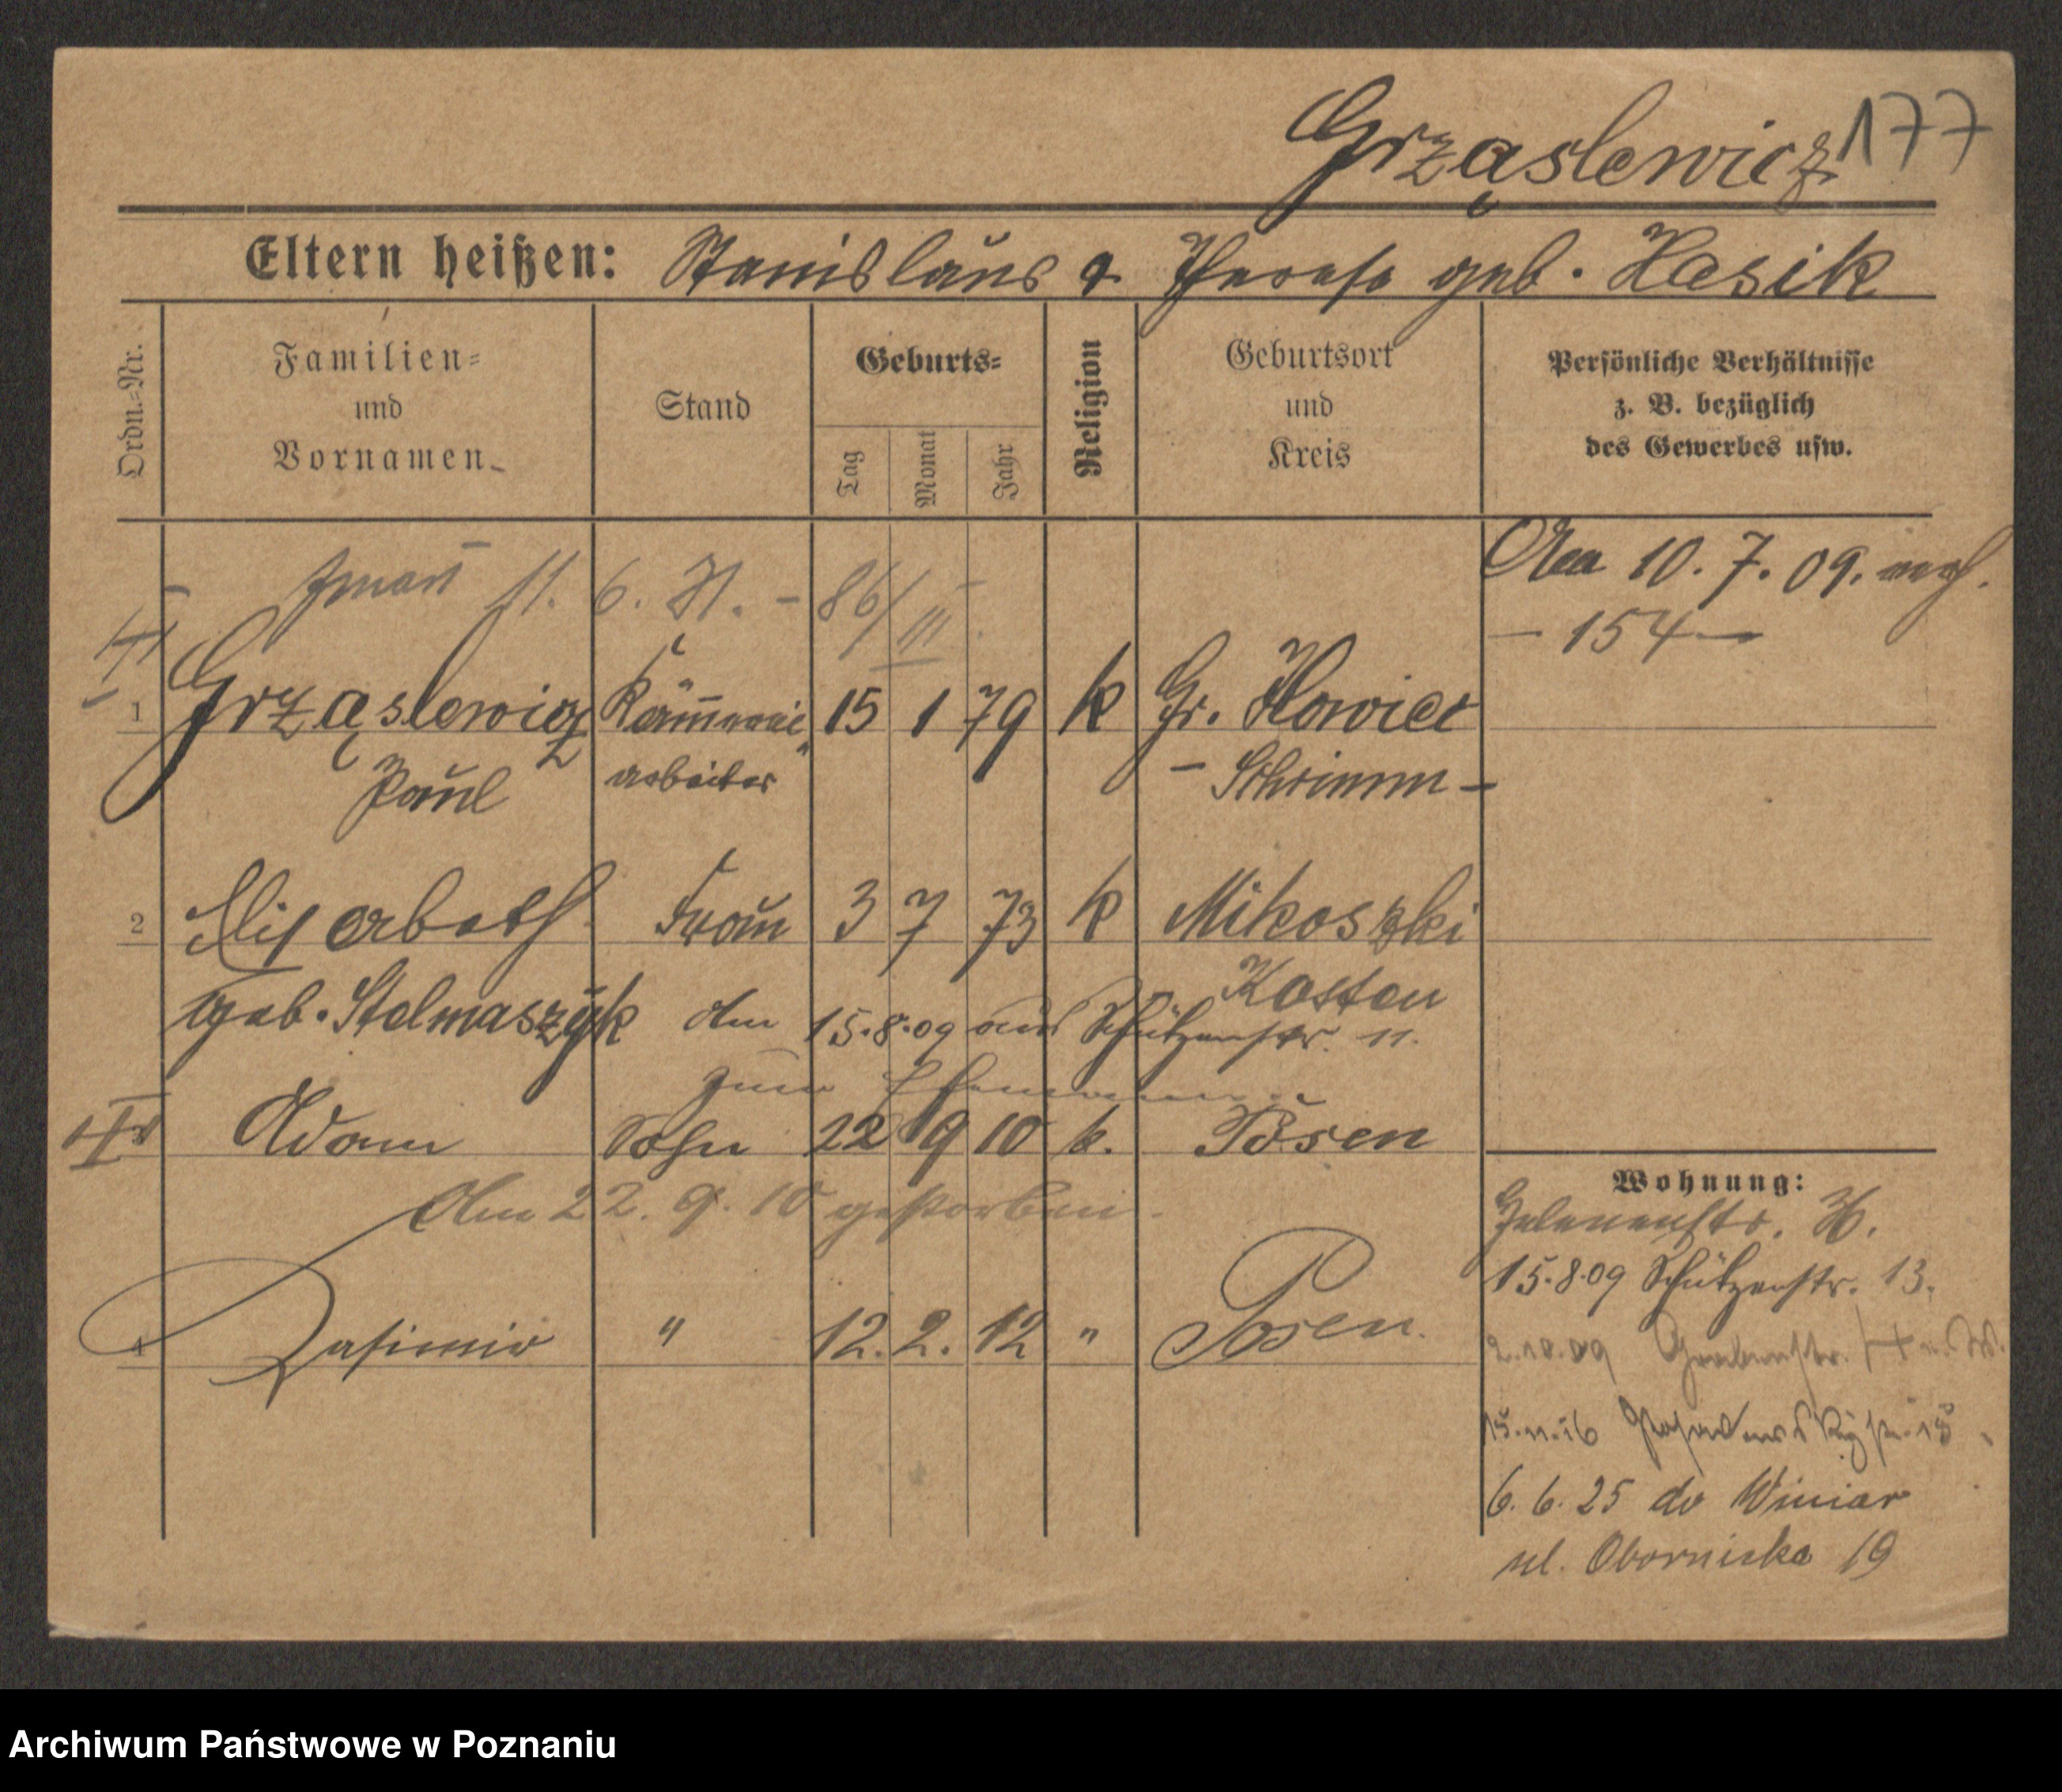 Grząslewicz 177
Eltern heißen: Stanislaus & Therese geb. Kasik
Ordn.-Nr.
Familien- und Vornamen
Stand
Geburts-
Tag Monat Jahr
Religion
Geburtsort und Kreis
Persönliche Verhältnisse z. B. bezüglich des Gewerbes usw.
11. 6. 31. - 86/III.
10. 7. 09.
- 154 -
1 Grząslewicz Kämmerei 15 1 79 k Gr.
Paul arbeiter - Schrimm -
2 Elisabeth Frau 3 7 73 k Mikoszki
geb. Stelmaszyk Kosten
am 15.8.09 aus Schützenstr. 11.
zum Ehemann
Adam Sohn 22 9 10 k. Posen
Am 22. 9. 10 gestorben.
4 Kasimir " 12. 2. 12 " Posen.
Wohnung:
15.8.09 Schützenstr. 13.
2.10.09 Grabenstr.
15.11.16
6. 6. 25 do Winiar
ul. Obornicka 19
Archiwum Państwowe w Poznaniu